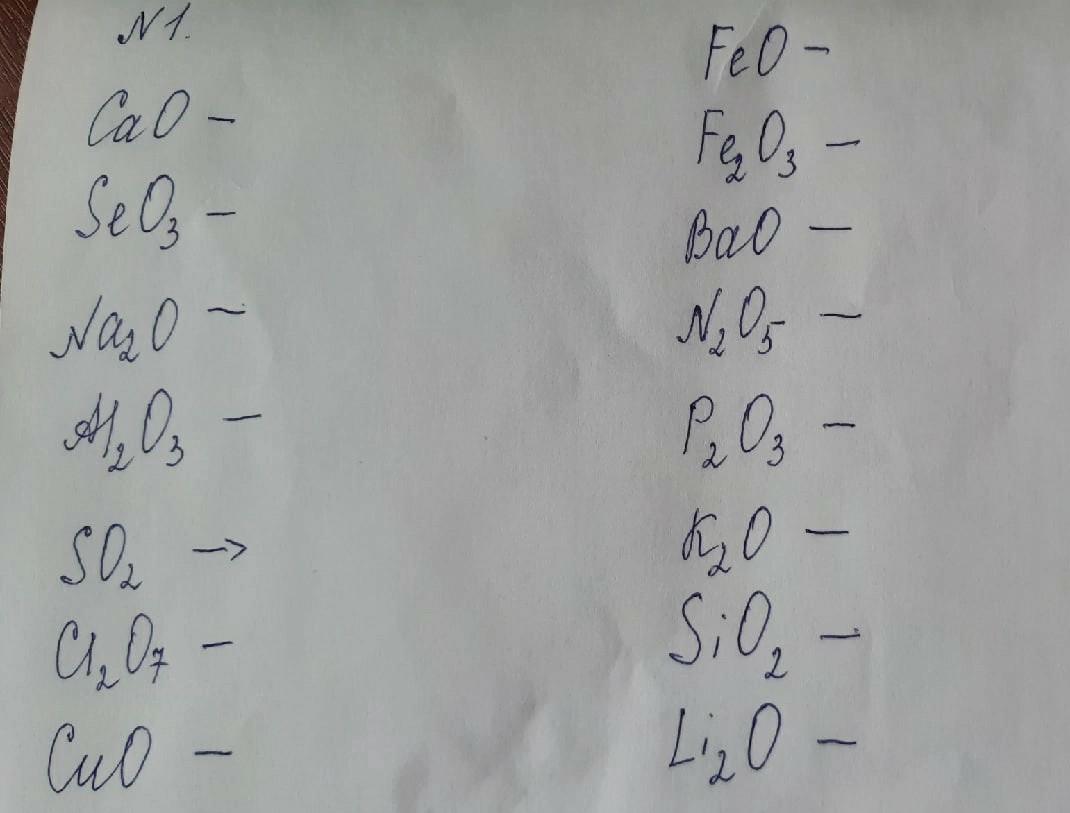 N1.
CaO –
SeO₃ –
Na₂O –
Al₂O₃ –
SO₂ →
Cl₂O₇ –
CuO –
FeO –
Fe₂O₃ –
BaO –
N₂O₅ –
P₂O₃ –
K₂O –
SiO₂ –
Li₂O –